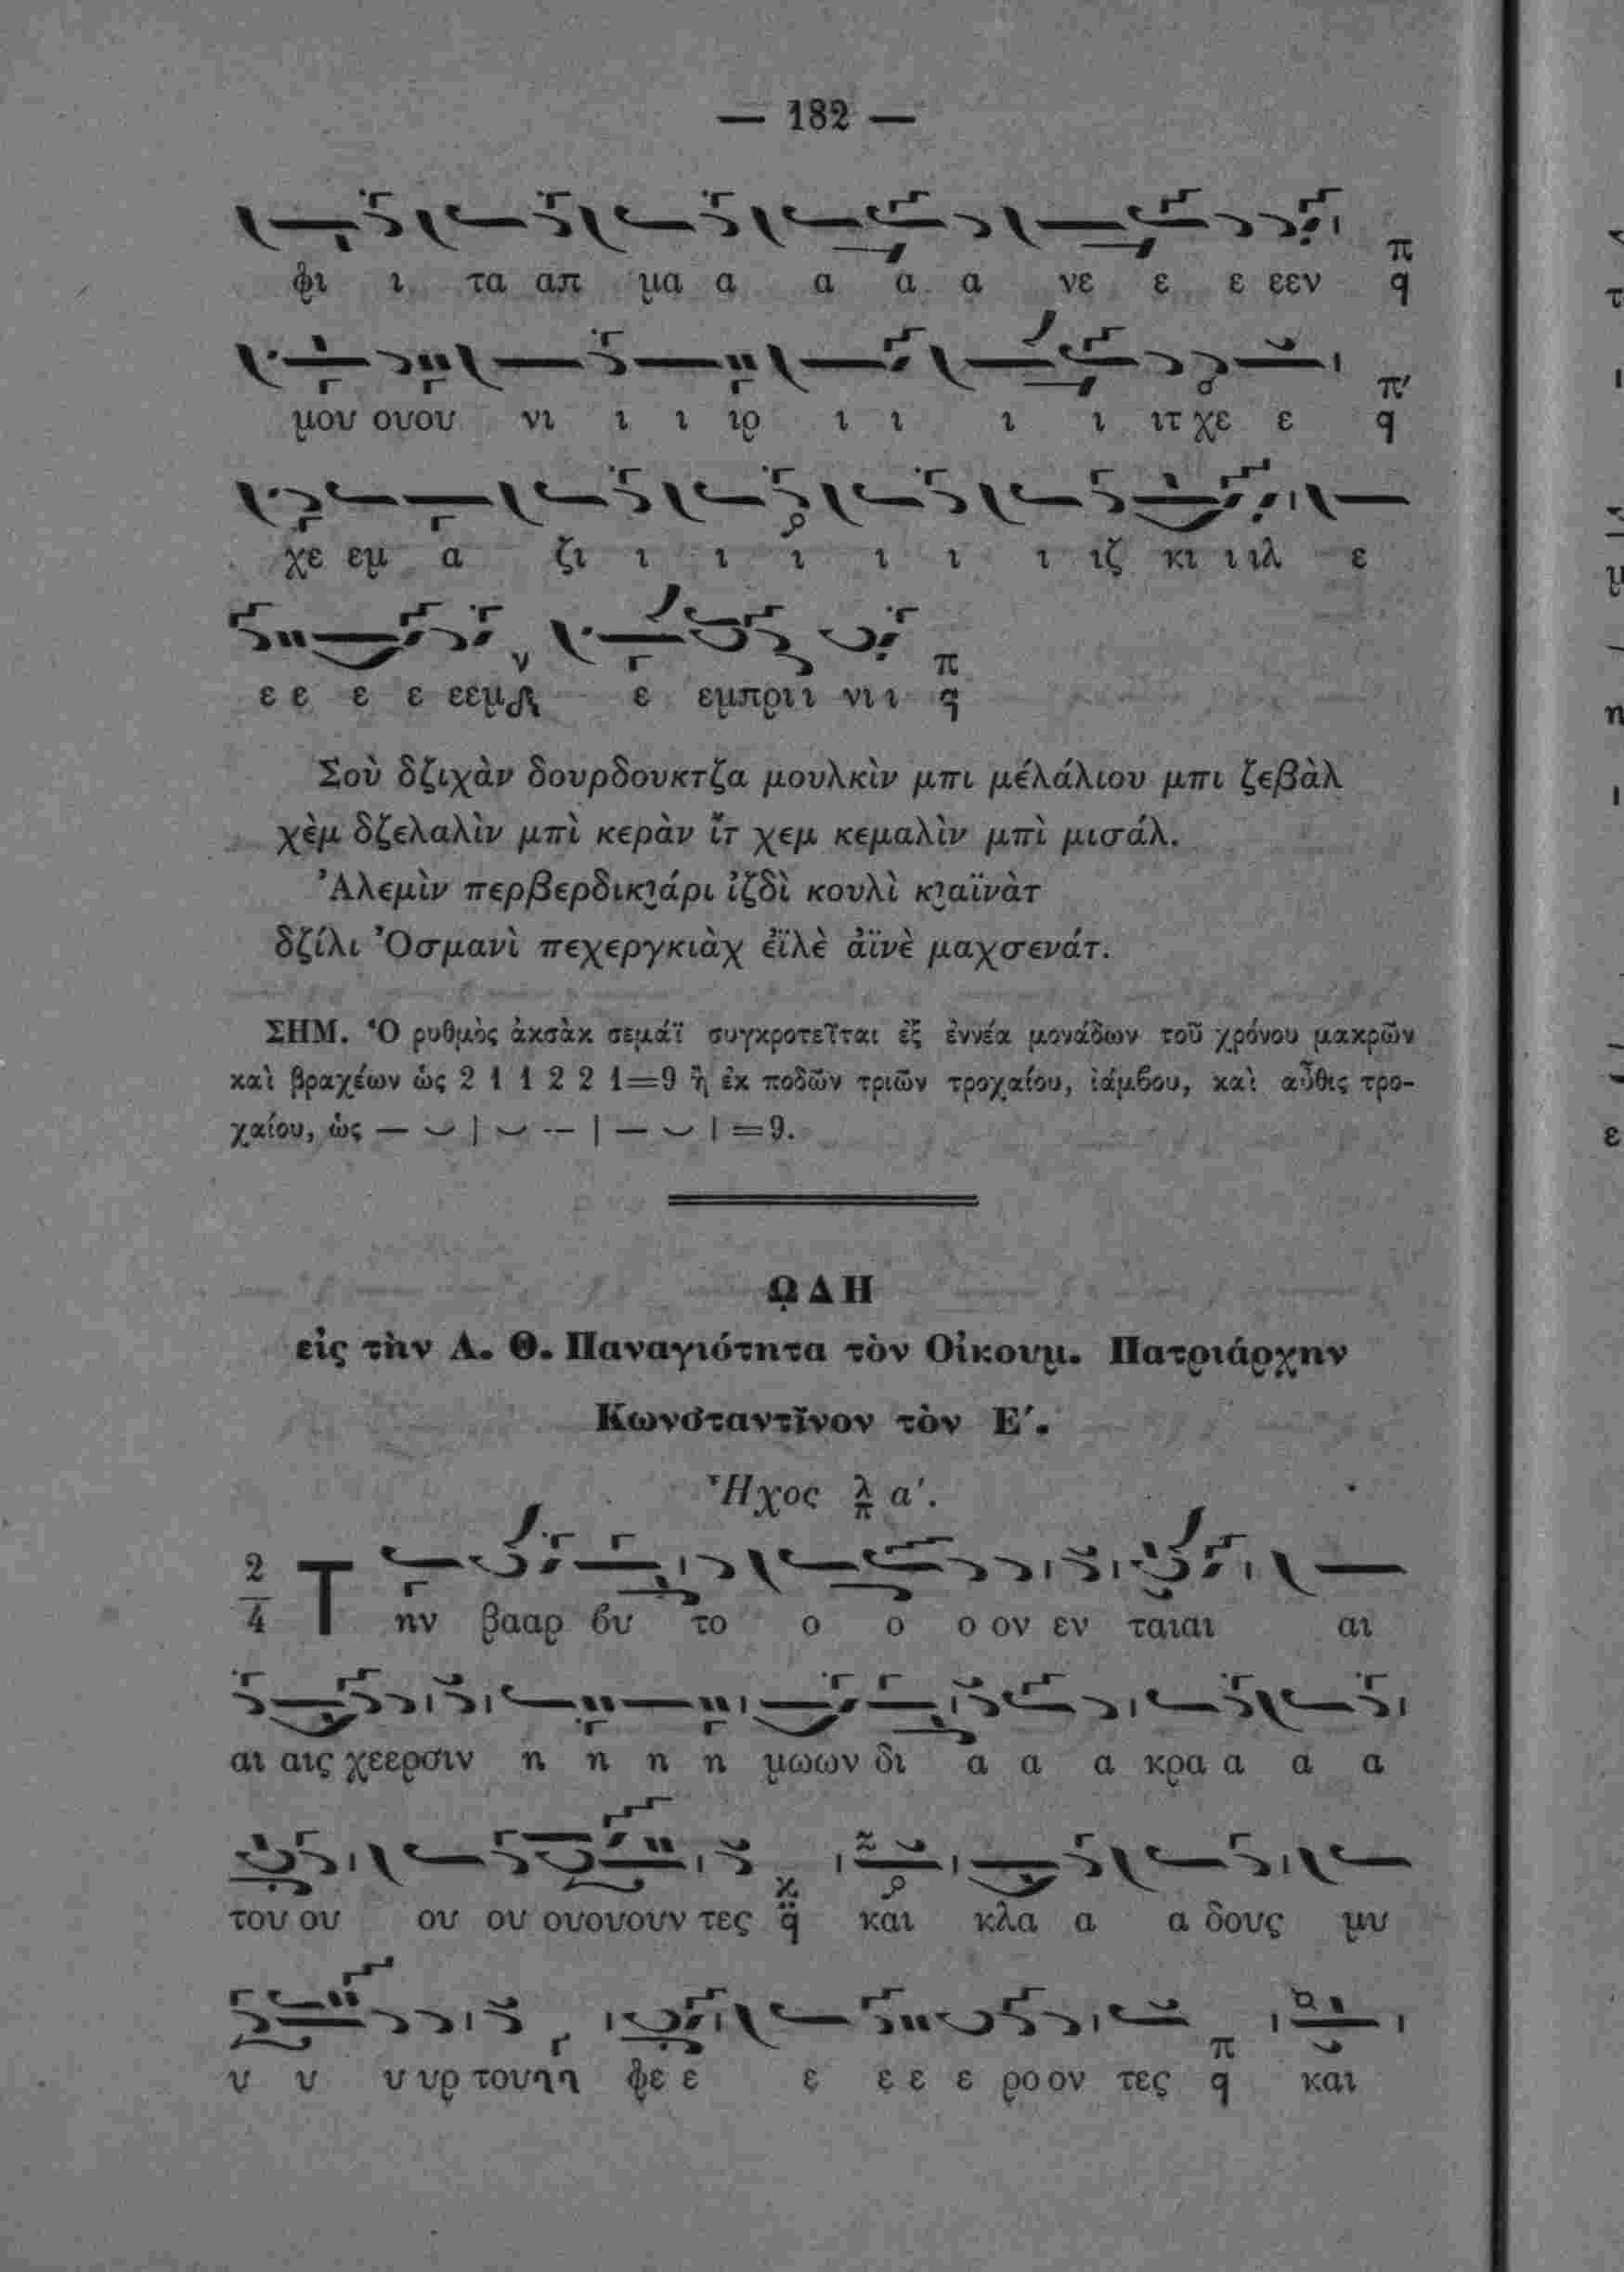 — 182 —
φι ι τα απ μα α α α α νε ε ε εεν π q
μου ουου νι ι ι ιρ ι ι ι ι ιτ χε ε π′ q
χε εμ α ζι ι ι ι ι ι ι ιζ κι ι ιλ ε
ε ε ε ε εεμ ε εμπριι νι ι π q
Σοὺ δζιχὰν δουρδουκτζα μουλκὶν μπι μέλάλιου μπι ζεβὰλ
χὲμ δζελαλὶν μπὶ κερὰν ἴτ χεμ κεμαλὶν μπὶ μισάλ.
Ἀλεμὶν περβερδικιάρι ἰζδὶ κουλὶ κιαϊνὰτ
δζίλι Ὀσμανὶ πεχεργκιὰχ ἐϊλὲ ἀϊνὲ μαχσενάτ.
ΣΗΜ. Ὁ ρυθμὸς ἀκσὰκ σεμάϊ συγκροτεῖται ἐξ ἐννέα μονάδων τοῦ χρόνου μακρῶν
καὶ βραχέων ὡς 2 1 1 2 2 1=9 ἢ ἐκ ποδῶν τριῶν τροχαίου, ἰάμβου, καὶ αὖθις τρο-
χαίου, ὡς — ⏑ | ⏑ — | — ⏑ | =9.
ᾨΔΗ
εἰς τὴν Α. Θ. Παναγιότητα τὸν Οἰκουμ. Πατριάρχην
Κωνσταντῖνον τὸν Ε′.
Ἦχος λ π α′.
2/4 Τ ην βααρ βυ το ο ο ο ον εν ταιαι αι
αι αις χεερσιν η η η η μωων δι α α α κρα α α α
του ου ου ου ουουουν τες q και κλα α α δους μυ
υ υ υ υρ του φε ε ε ε ε ε ρο ον τες π q και